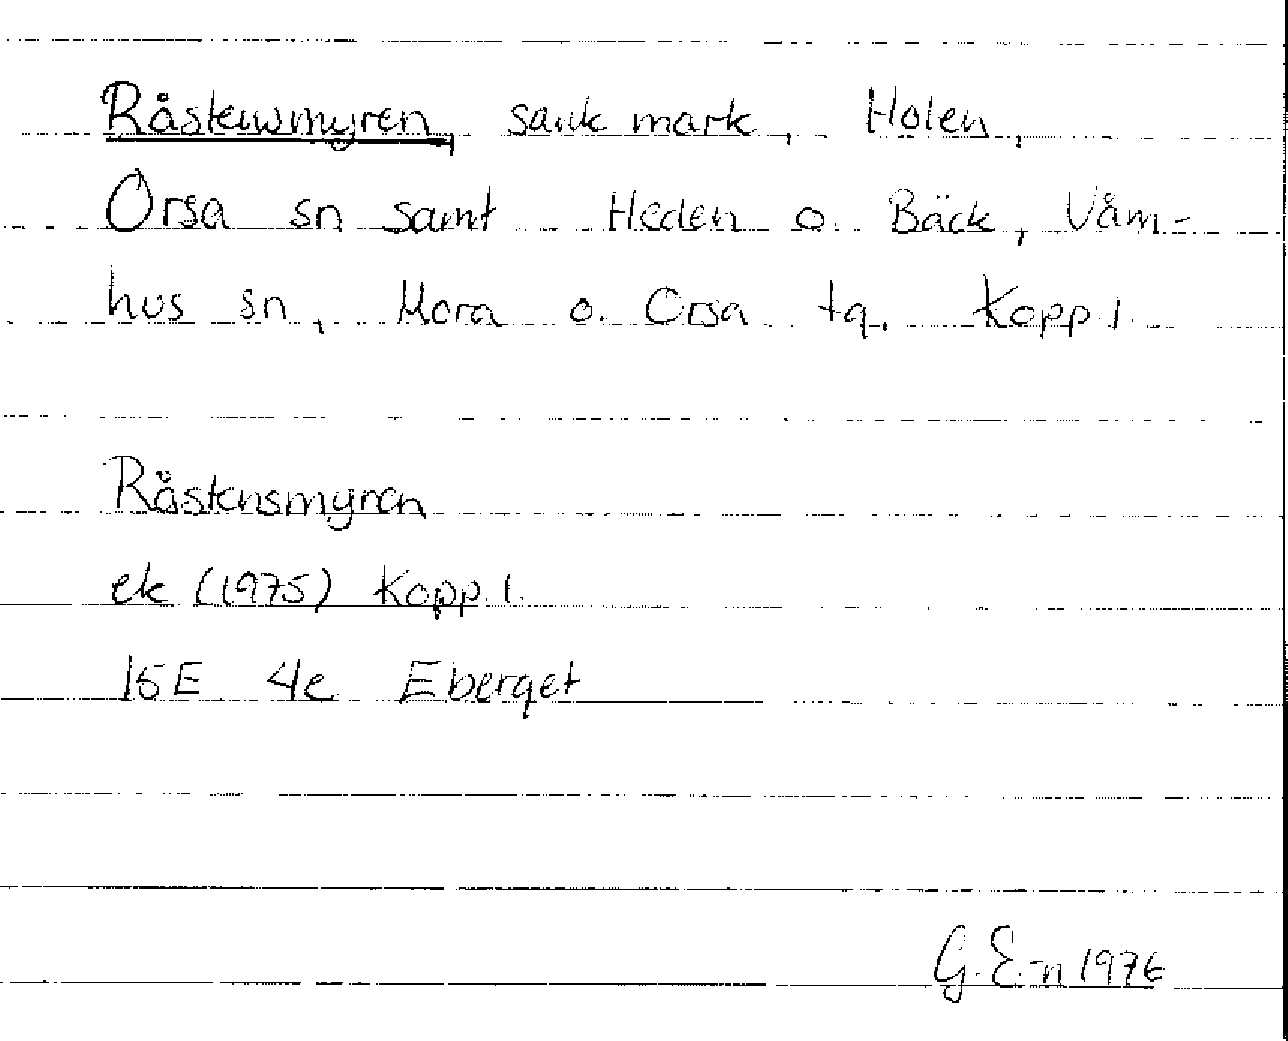 Råstensmyren, sank mark, Holen,
Orsa sn samt Heden o. Bäck, Våm-
hus sn, Mora o. Orsa tg. Kopp. l.
Råstensmyren
ek (1975) Kopp. l.
15E 4e Eberget
G. E-n 1976